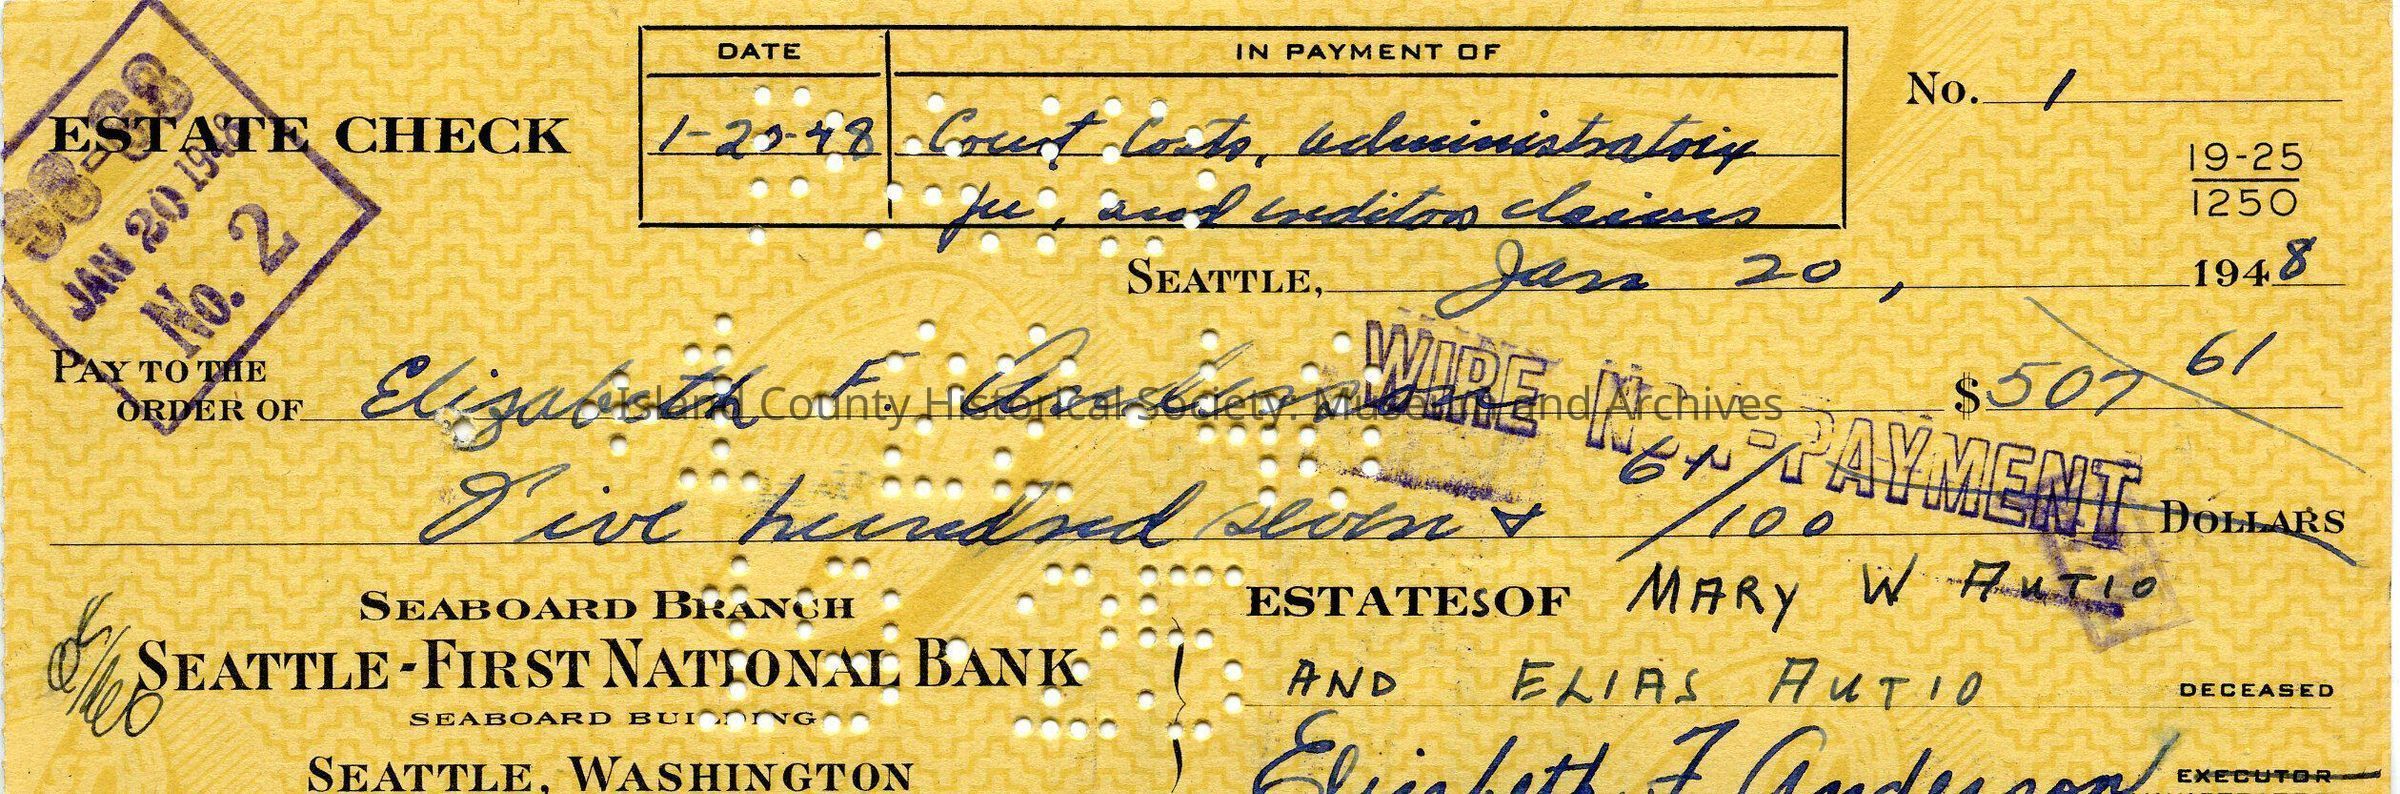 DATE IN PAYMENT OF
No. 1
ESTATE CHECK
1-20-48 Court Costs, administratrix
fee, and creditors claims
19-25
1250
98-68
JAN 20 1948
No. 2
SEATTLE, Jan 20, 1948
PAY TO THE
ORDER OF Elizabeth F. Anderson $507 61
Island County Historical Society: Museum and Archives
WIRE NON-PAYMENT
Five hundred seven & 61/100 DOLLARS
SEABOARD BRANCH
ESTATES OF MARY W AUTIO
SEATTLE-FIRST NATIONAL BANK
AND ELIAS AUTIO DECEASED
SEABOARD BUILDING
Elizabeth F Anderson EXECUTOR
SEATTLE, WASHINGTON